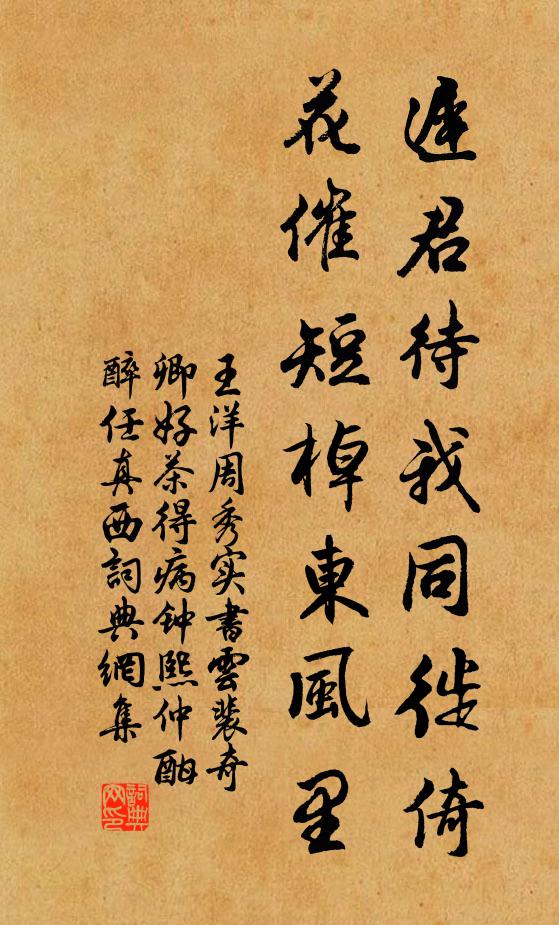 遲君待我同徙倚
花催短棹東風里
王洋周秀实書雲裴奇
卿好茶得病钟熙仲酣
醉任真西詞典網集
詞典
网印